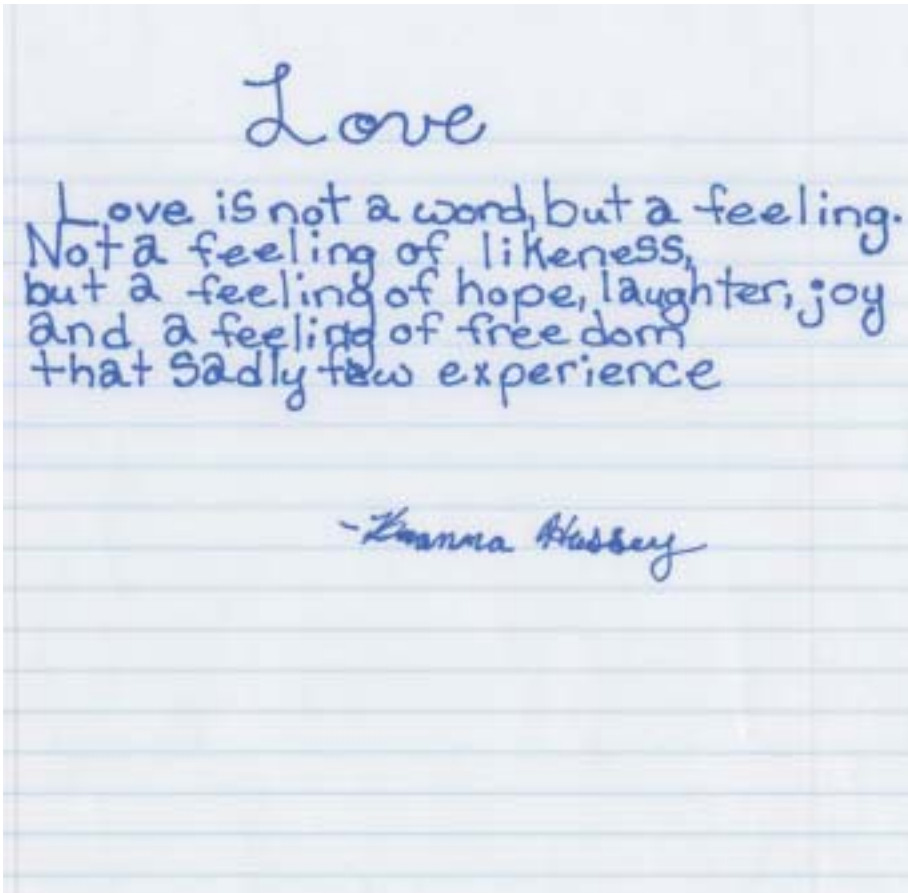 Love
Love is not a word, but a feeling.
Not a feeling of likeness,
but a feeling of hope, laughter, joy
and a feeling of freedom
that sadly few experience
- Hussey